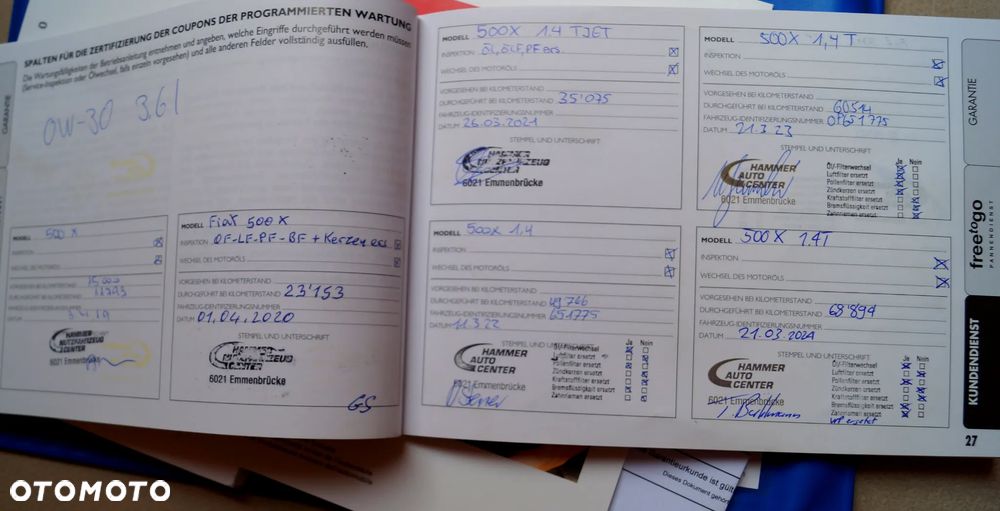 SPALTEN FÜR DIE ZERTIFIZIERUNG DER COUPONS DER PROGRAMMIERTEN WARTUNG
Die Wartungsfälligkeiten der Betriebsanleitung entnehmen und angeben, welche Eingriffe durchgeführt werden müssen
(Service-Inspektion oder Ölwechsel, falls einzeln vorgesehen) und alle anderen Felder vollständig ausfüllen.
GARANTIE
0W-30 3.6l
MODELL 500 X
INSPEKTION
WECHSEL DES MOTORÖLS
VORGESEHEN BEI KILOMETERSTAND 15.000
DURCHGEFÜHRT BEI KILOMETERSTAND
FAHRZEUG-IDENTIFIZIERUNGSNUMMER
DATUM
HAMMER
NUTZFAHRZEUG
CENTER
6021 Emmenbrücke
MODELL Fiat 500 X
INSPEKTION OF-LF-PF-BF + Kerzen ers
WECHSEL DES MOTORÖLS
VORGESEHEN BEI KILOMETERSTAND
DURCHGEFÜHRT BEI KILOMETERSTAND 23'153
FAHRZEUG-IDENTIFIZIERUNGSNUMMER
DATUM 01.04.2020
STEMPEL UND UNTERSCHRIFT
HAMMER
NUTZFAHRZEUG
CENTER
6021 Emmenbrücke
GS
MODELL 500X 1.4 TJET
INSPEKTION
WECHSEL DES MOTORÖLS
VORGESEHEN BEI KILOMETERSTAND
DURCHGEFÜHRT BEI KILOMETERSTAND 35'075
FAHRZEUG-IDENTIFIZIERUNGSNUMMER
DATUM 26.03.2021
STEMPEL UND UNTERSCHRIFT
HAMMER
NUTZFAHRZEUG
CENTER
6021 Emmenbrücke
MODELL 500X 1,4 T
INSPEKTION
WECHSEL DES MOTORÖLS
VORGESEHEN BEI KILOMETERSTAND
DURCHGEFÜHRT BEI KILOMETERSTAND 60514
FAHRZEUG-IDENTIFIZIERUNGSNUMMER OP651775
DATUM 21.3.23
STEMPEL UND UNTERSCHRIFT
HAMMER
AUTO
CENTER
6021 Emmenbrücke
Ja Nein
Öl-/Filterwechsel
Luftfilter ersetzt
Pollenfilter ersetzt
Zündkerzen ersetzt
Kraftstofffilter ersetzt
Bremsflüssigkeit ersetzt
Zahnriemen ersetzt
MODELL 500X 1,4
INSPEKTION
WECHSEL DES MOTORÖLS
VORGESEHEN BEI KILOMETERSTAND
DURCHGEFÜHRT BEI KILOMETERSTAND 49766
FAHRZEUG-IDENTIFIZIERUNGSNUMMER 651775
DATUM 11.3.22
STEMPEL UND UNTERSCHRIFT
HAMMER
AUTO
CENTER
6021 Emmenbrücke
Ja Nein
Öl-/Filterwechsel
Luftfilter ersetzt
Pollenfilter ersetzt
Zündkerzen ersetzt
Kraftstofffilter ersetzt
Bremsflüssigkeit ersetzt
Zahnriemen ersetzt
MODELL 500X 1.4T
INSPEKTION
WECHSEL DES MOTORÖLS
VORGESEHEN BEI KILOMETERSTAND
DURCHGEFÜHRT BEI KILOMETERSTAND 68'894
FAHRZEUG-IDENTIFIZIERUNGSNUMMER
DATUM 21.03.2024
STEMPEL UND UNTERSCHRIFT
HAMMER
AUTO
CENTER
6021 Emmenbrücke
Ja Nein
Öl-/Filterwechsel
Luftfilter ersetzt
Pollenfilter ersetzt
Zündkerzen ersetzt
Kraftstofffilter ersetzt
Bremsflüssigkeit ersetzt
Zahnriemen ersetzt
WP ersetzt
GARANTIE
freetogo
PANNENDIENST
KUNDENDIENST
27
Garantieurkunde ist gült
Dieses Dokument gehör
OTOMOTO